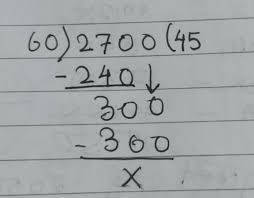 60)2700(45
-240↓
300
-300
X